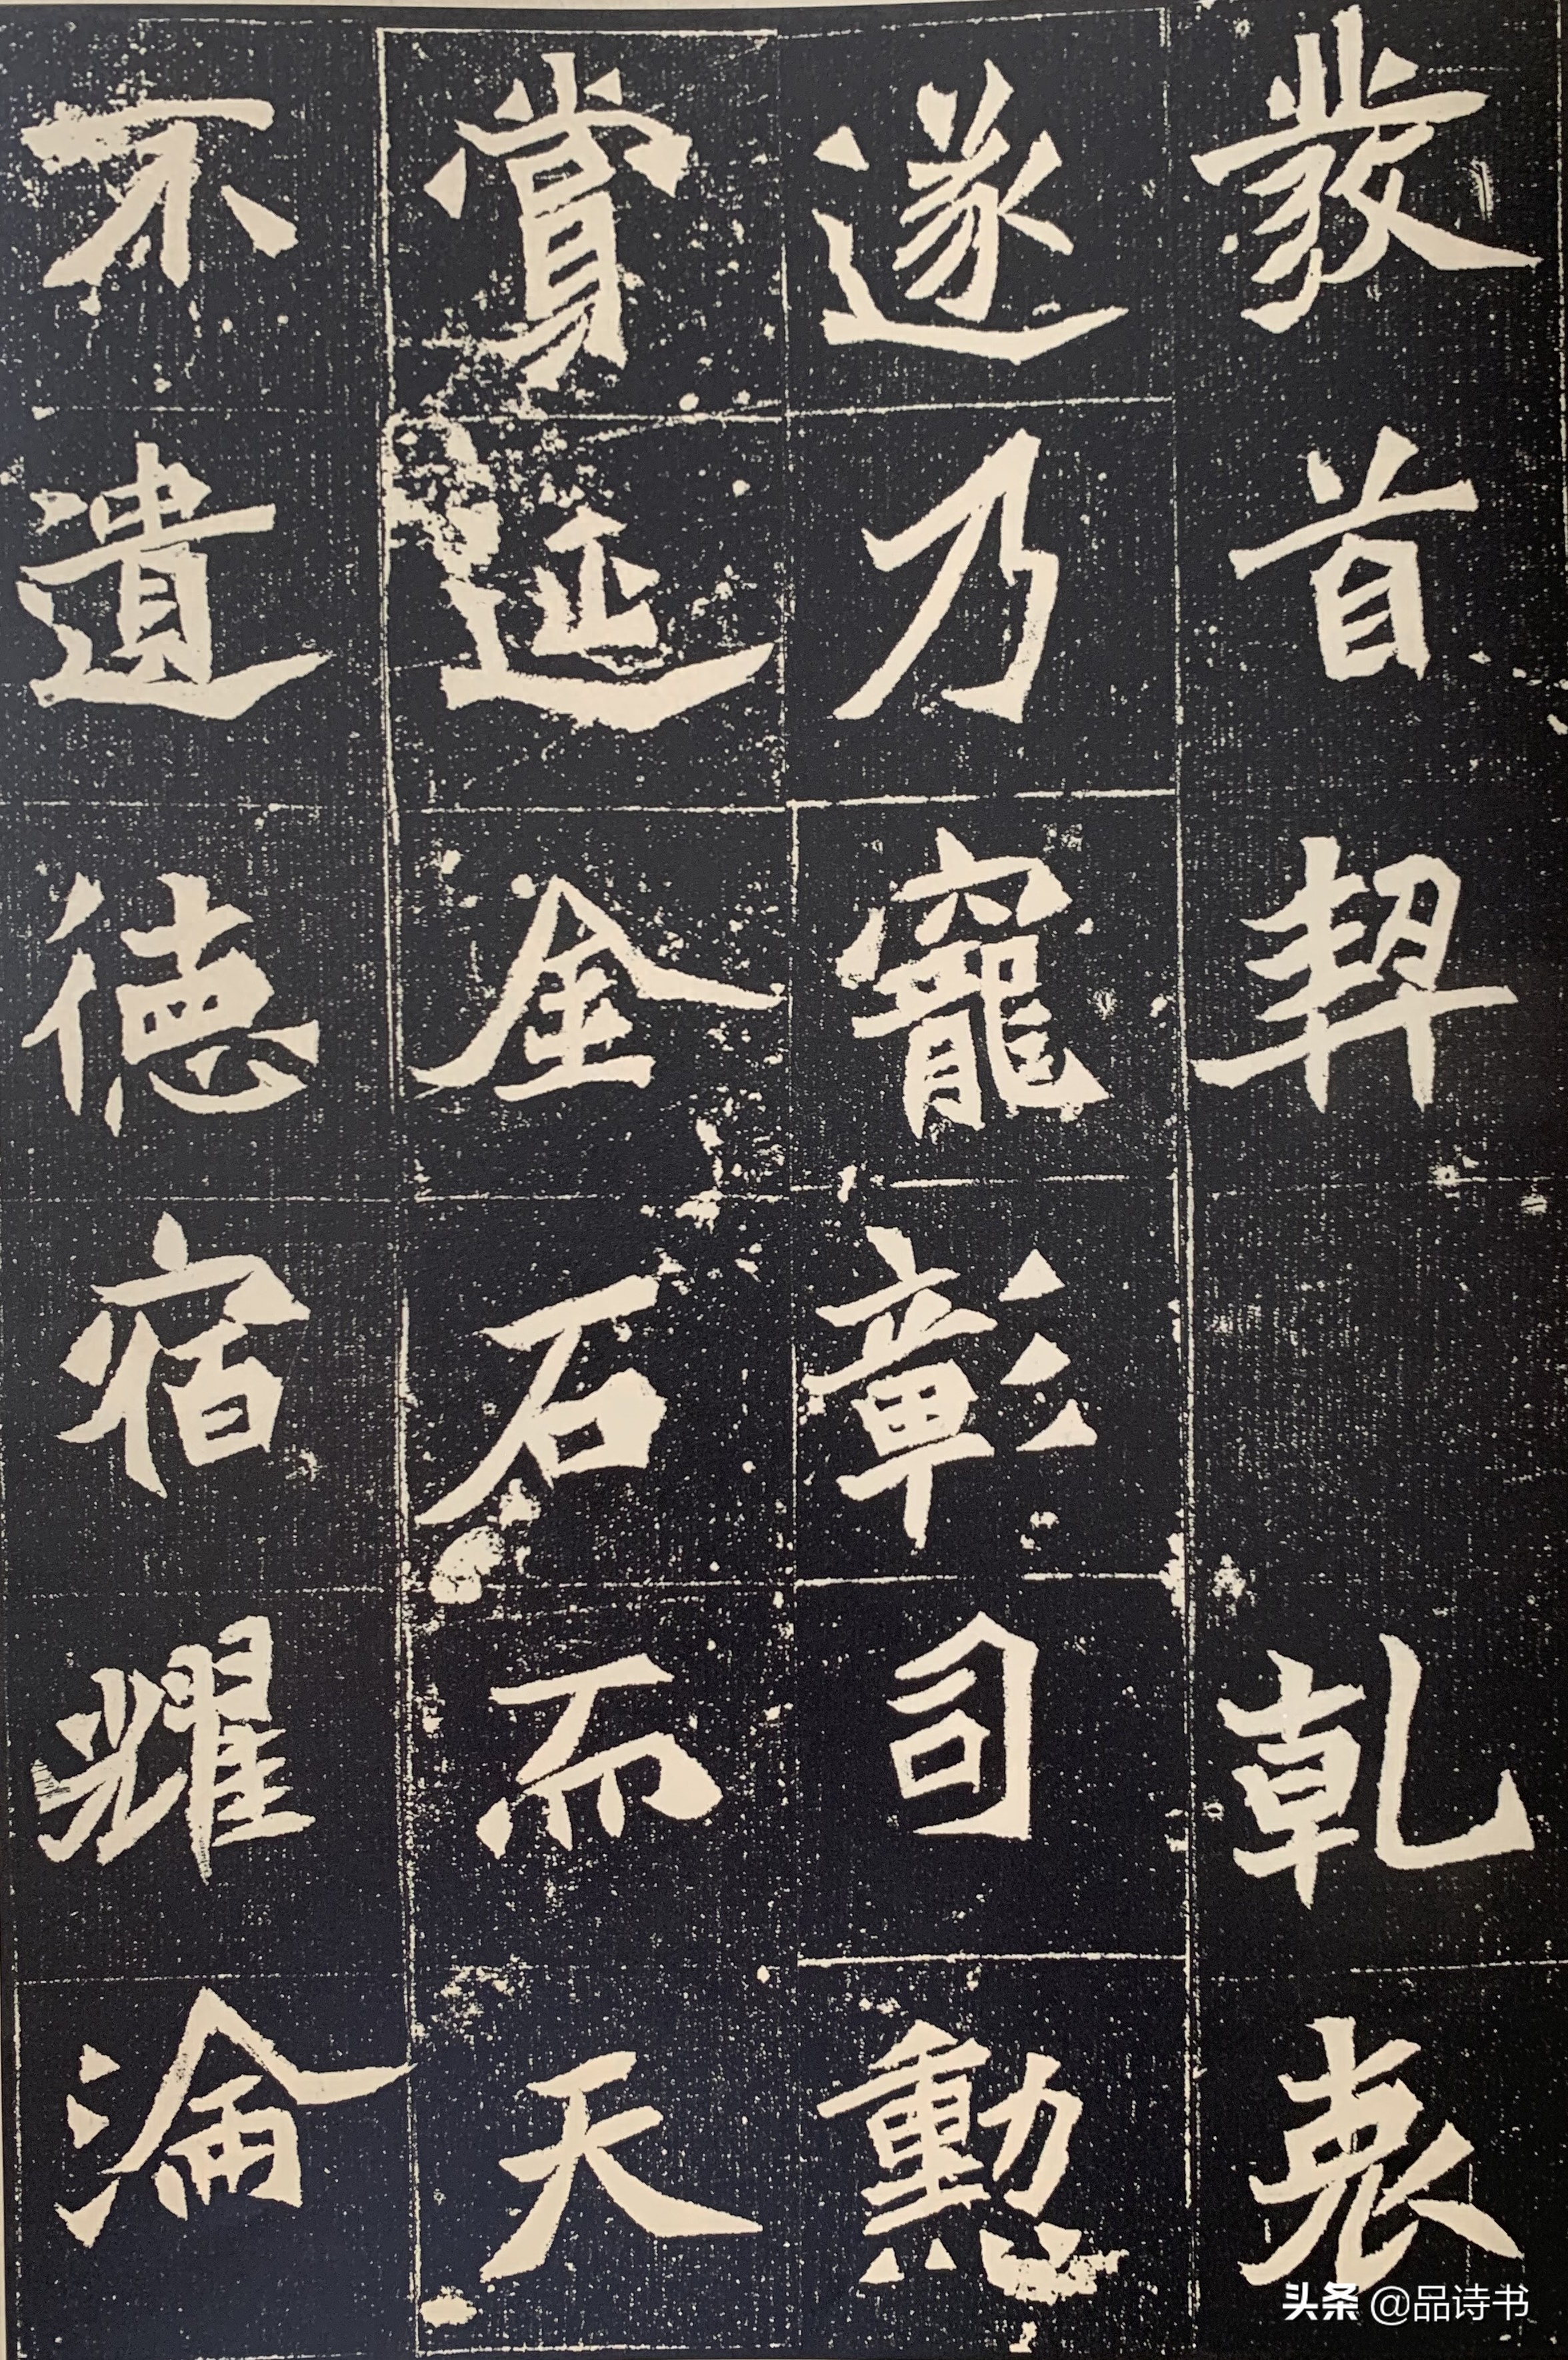 發首契 乾衷
遂乃寵彰司勳
賞延金石而天
不遺德宿耀淪
头条 @品诗书